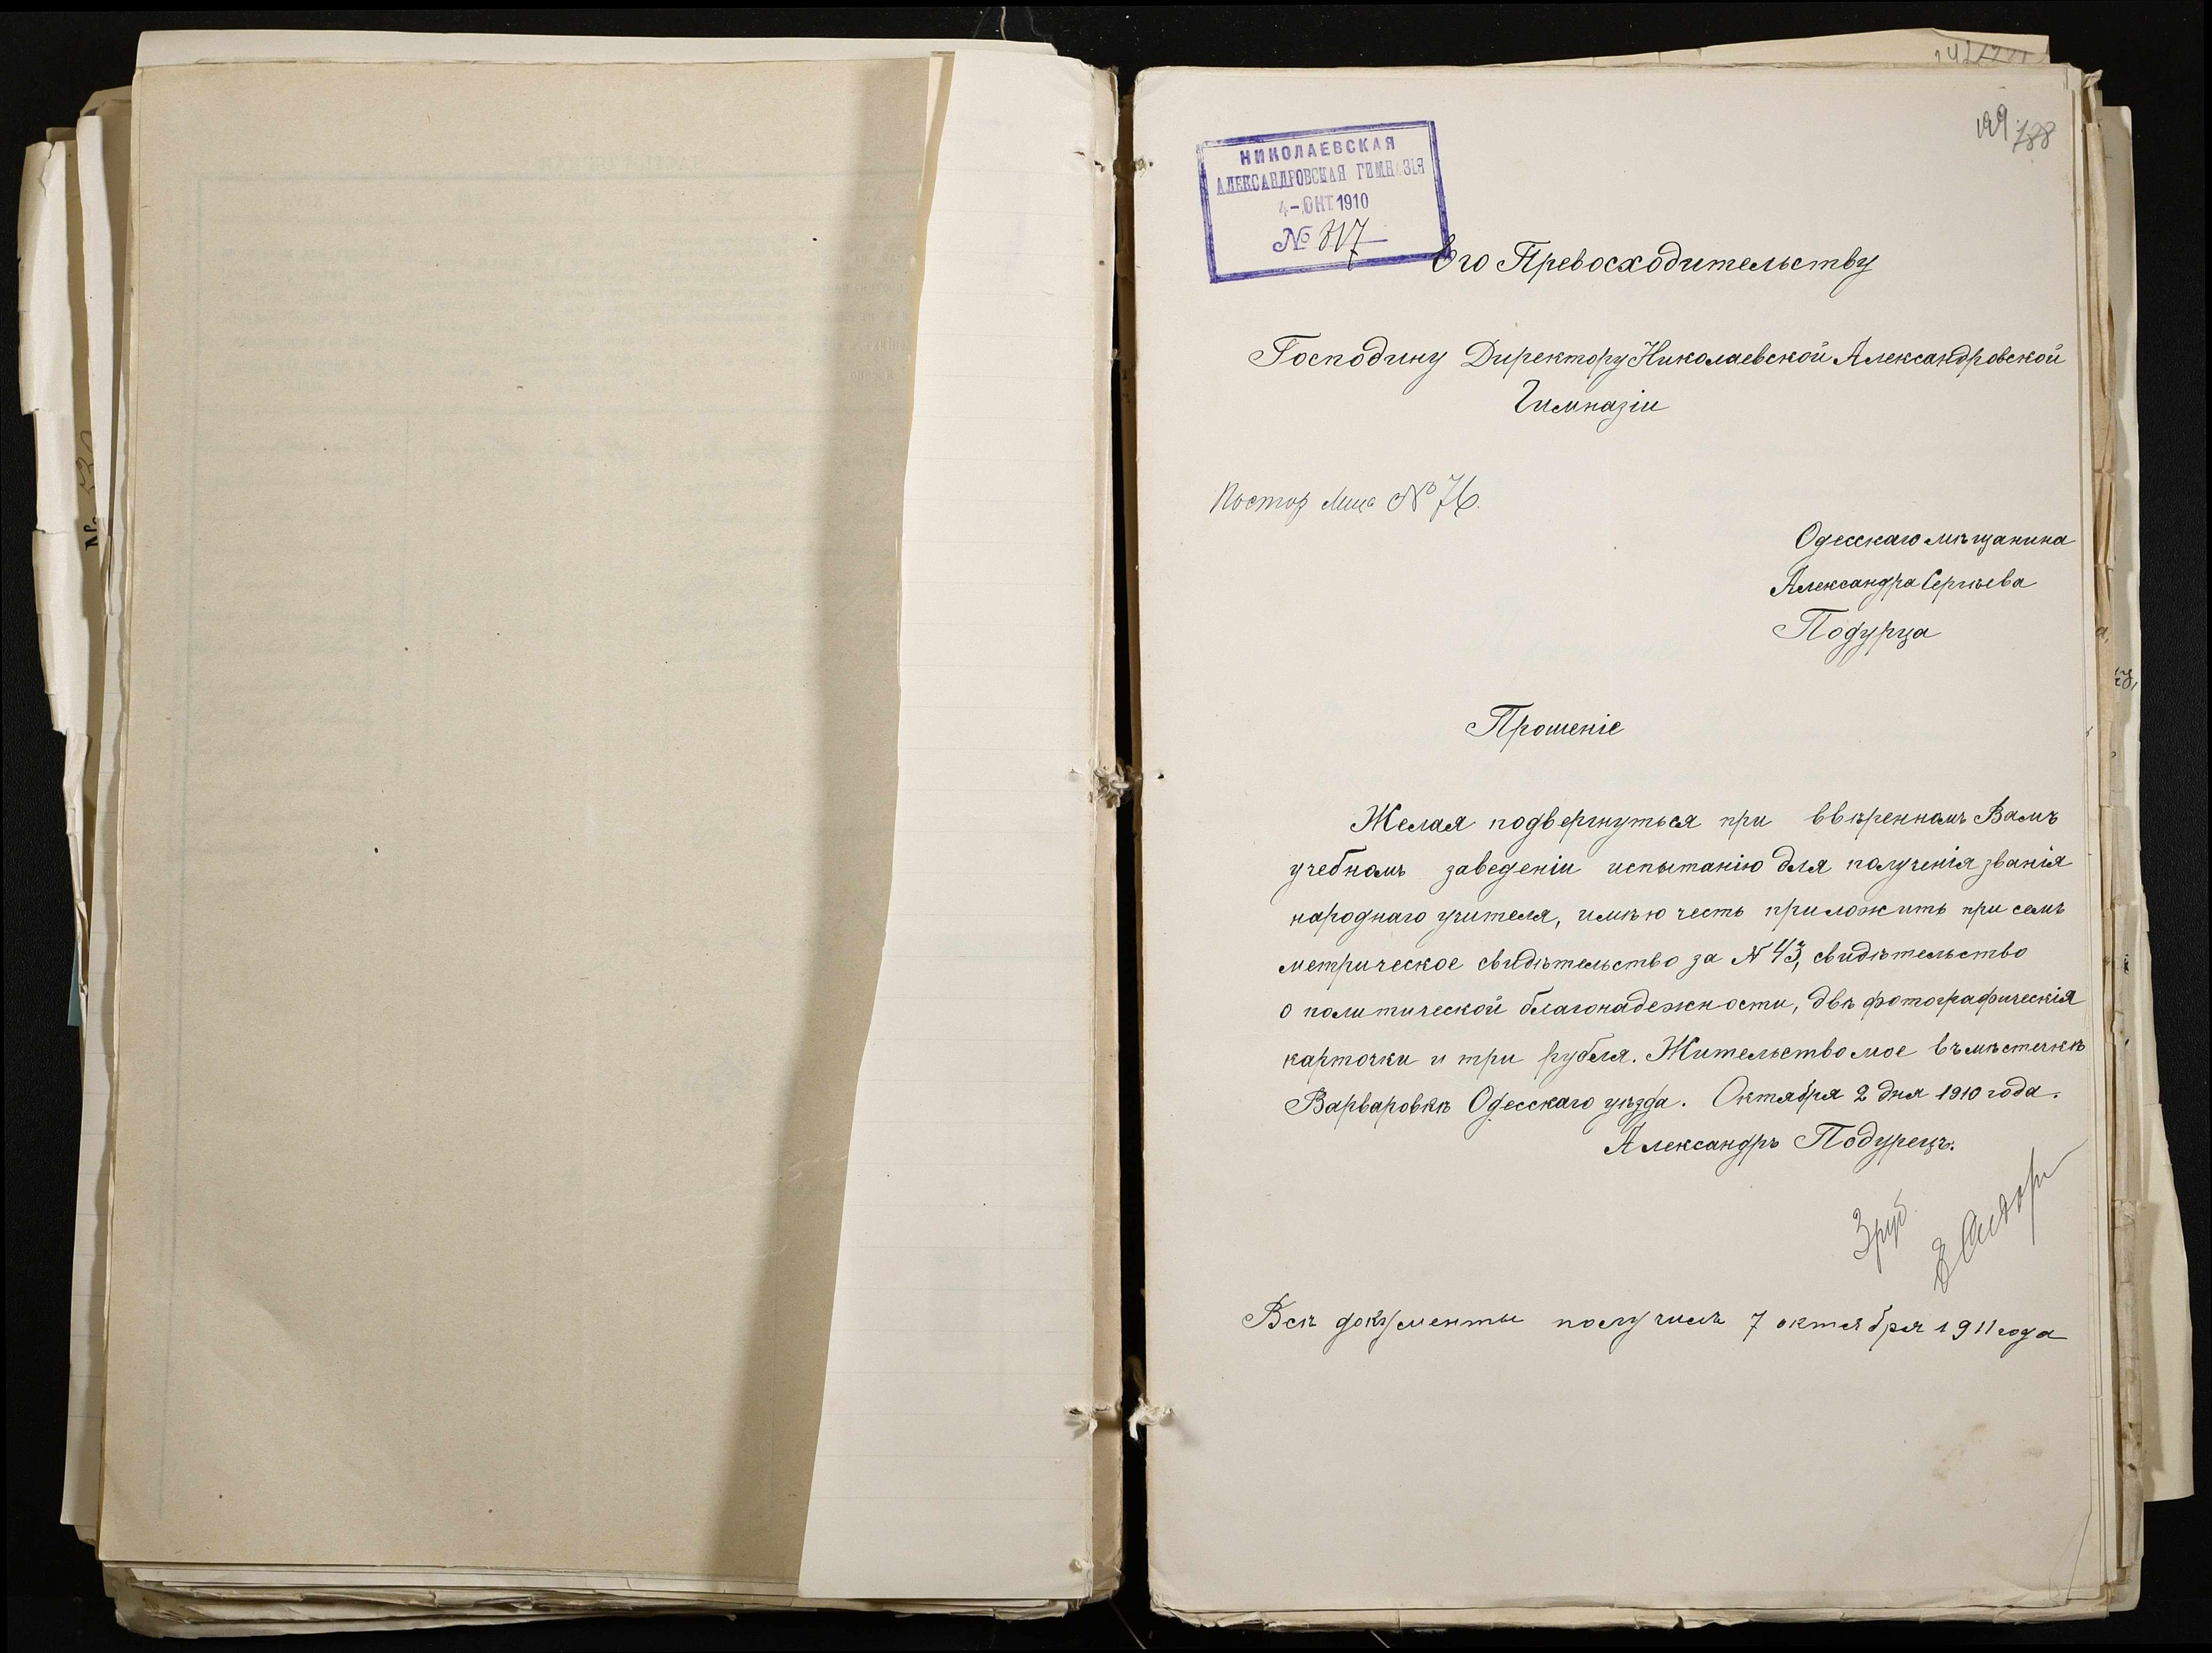 199 188
НИКОЛАЕВСКАЯ
АЛЕКСАНДРОВСКАЯ ГИМНАЗІЯ
4-ОКТ 1910
№ 317
Его Превосходительству
Господину Директору Николаевской Александровской
Гимназіи
Постор лица № 76.
Одесскаго мѣщанина
Александра Сергѣева
Подурца
Прошеніе
Желая подвергнуться при ввѣренномъ Вамъ
учебномъ заведеніи испытанію для полученія званія
народнаго учителя, имѣю честь приложить при семъ
метрическое свидѣтельство за N 43, свидѣтельство
о политической благонадежности, двѣ фотографическія
карточки и три рубля. Жительство мое въ мѣстечкѣ
Варваровкѣ Одесскаго уѣзда. Октября 2 дня 1910 года.
Александръ Подурецъ.
3 руб
Всѣ документы получилъ 7 октября 1911 года